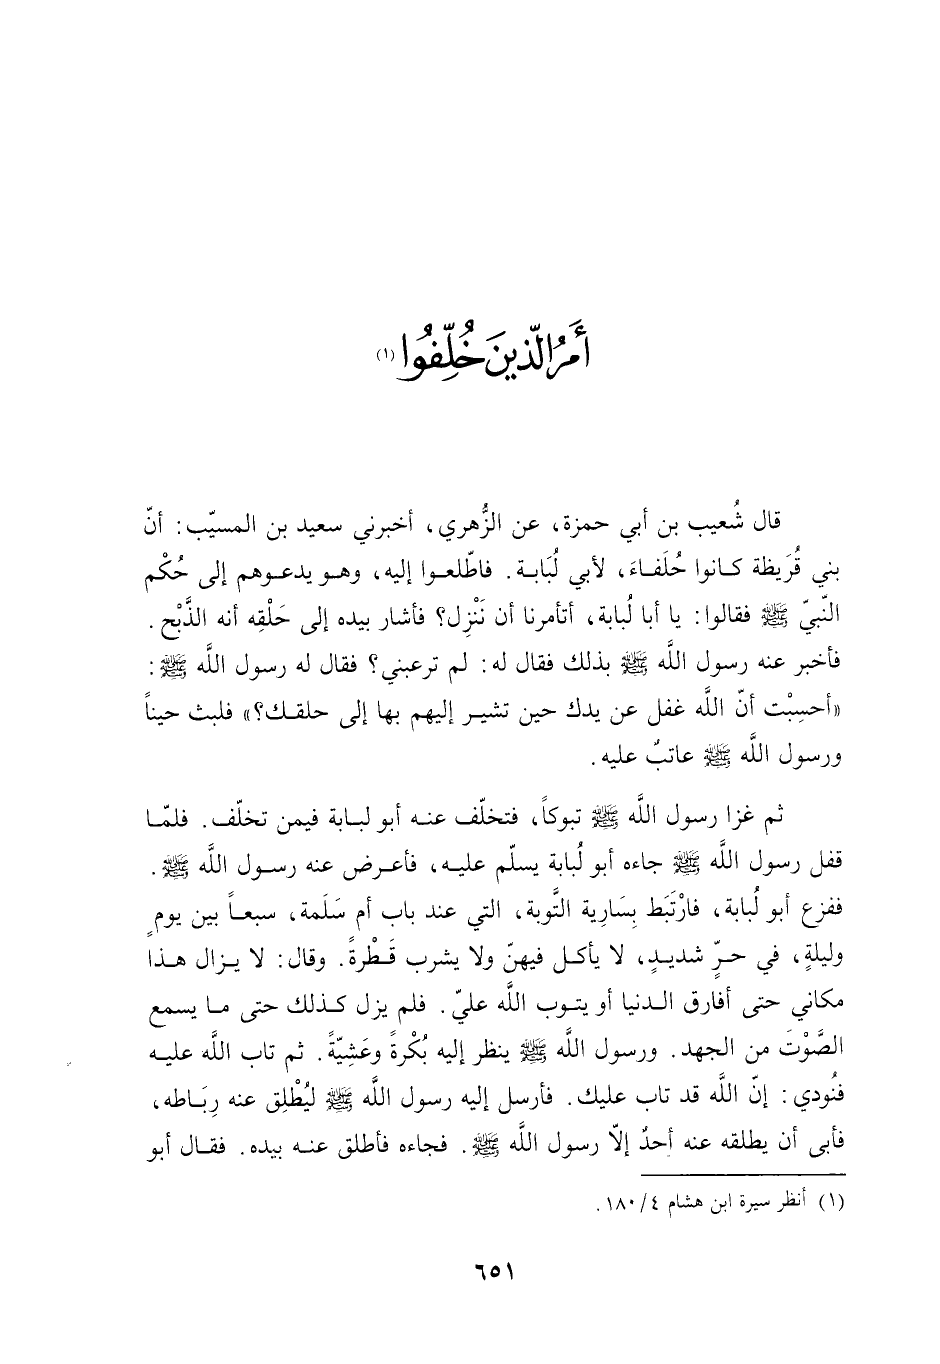 أَمرُ الّذينَ خُلِّفُوا (١)
قال شُعيب بن أبي حمزة، عن الزُّهري، أخبرني سعيد بن المسيّب: أنّ
بني قُرَيظة كانوا حُلَفاءَ، لأبي لُبَابة. فاطّلعوا إليه، وهو يدعوهم إلى حُكْم
النّبيّ ﷺ فقالوا: يا أبا لُبابة، أتأمرنا أن نَنْزِل؟ فأشار بيده إلى حَلْقِه أنه الذَّبْح.
فأخبر عنه رسول اللَّه ﷺ بذلك فقال له: لم ترعبني؟ فقال له رسول اللَّه ﷺ:
«أحسِبْت أنّ اللَّه غفل عن يدك حين تشير إليهم بها إلى حلقك؟» فلبث حيناً
ورسول اللَّه ﷺ عاتبٌ عليه.
ثم غزا رسول اللَّه ﷺ تبوكاً، فتخلّف عنه أبو لبابة فيمن تخلّف. فلمّا
قفل رسول اللَّه ﷺ جاءه أبو لُبابة يسلّم عليه، فأعرض عنه رسول اللَّه ﷺ.
ففزع أبو لُبابة، فارْتَبَط بِسَارِية التَّوبة، التي عند باب أم سَلَمة، سبعاً بين يومٍ
وليلةٍ، في حرٍّ شديدٍ، لا يأكل فيهنّ ولا يشرب قَطْرةً. وقال: لا يزال هذا
مكاني حتى أفارق الدنيا أو يتوب اللَّه عليّ. فلم يزل كذلك حتى ما يسمع
الصَّوْتَ من الجهد. ورسول اللَّه ﷺ ينظر إليه بُكْرةً وعَشِيّةً. ثم تاب اللَّه عليه
فنُودي: إنّ اللَّه قد تاب عليك. فأرسل إليه رسول اللَّه ﷺ ليُطْلِق عنه رِبَاطه،
فأبى أن يطلقه عنه أحدٌ إلاّ رسول اللَّه ﷺ. فجاءه فأطلق عنه بيده. فقال أبو
(١) أنظر سيرة ابن هشام ٤/١٨٠.
٦٥١